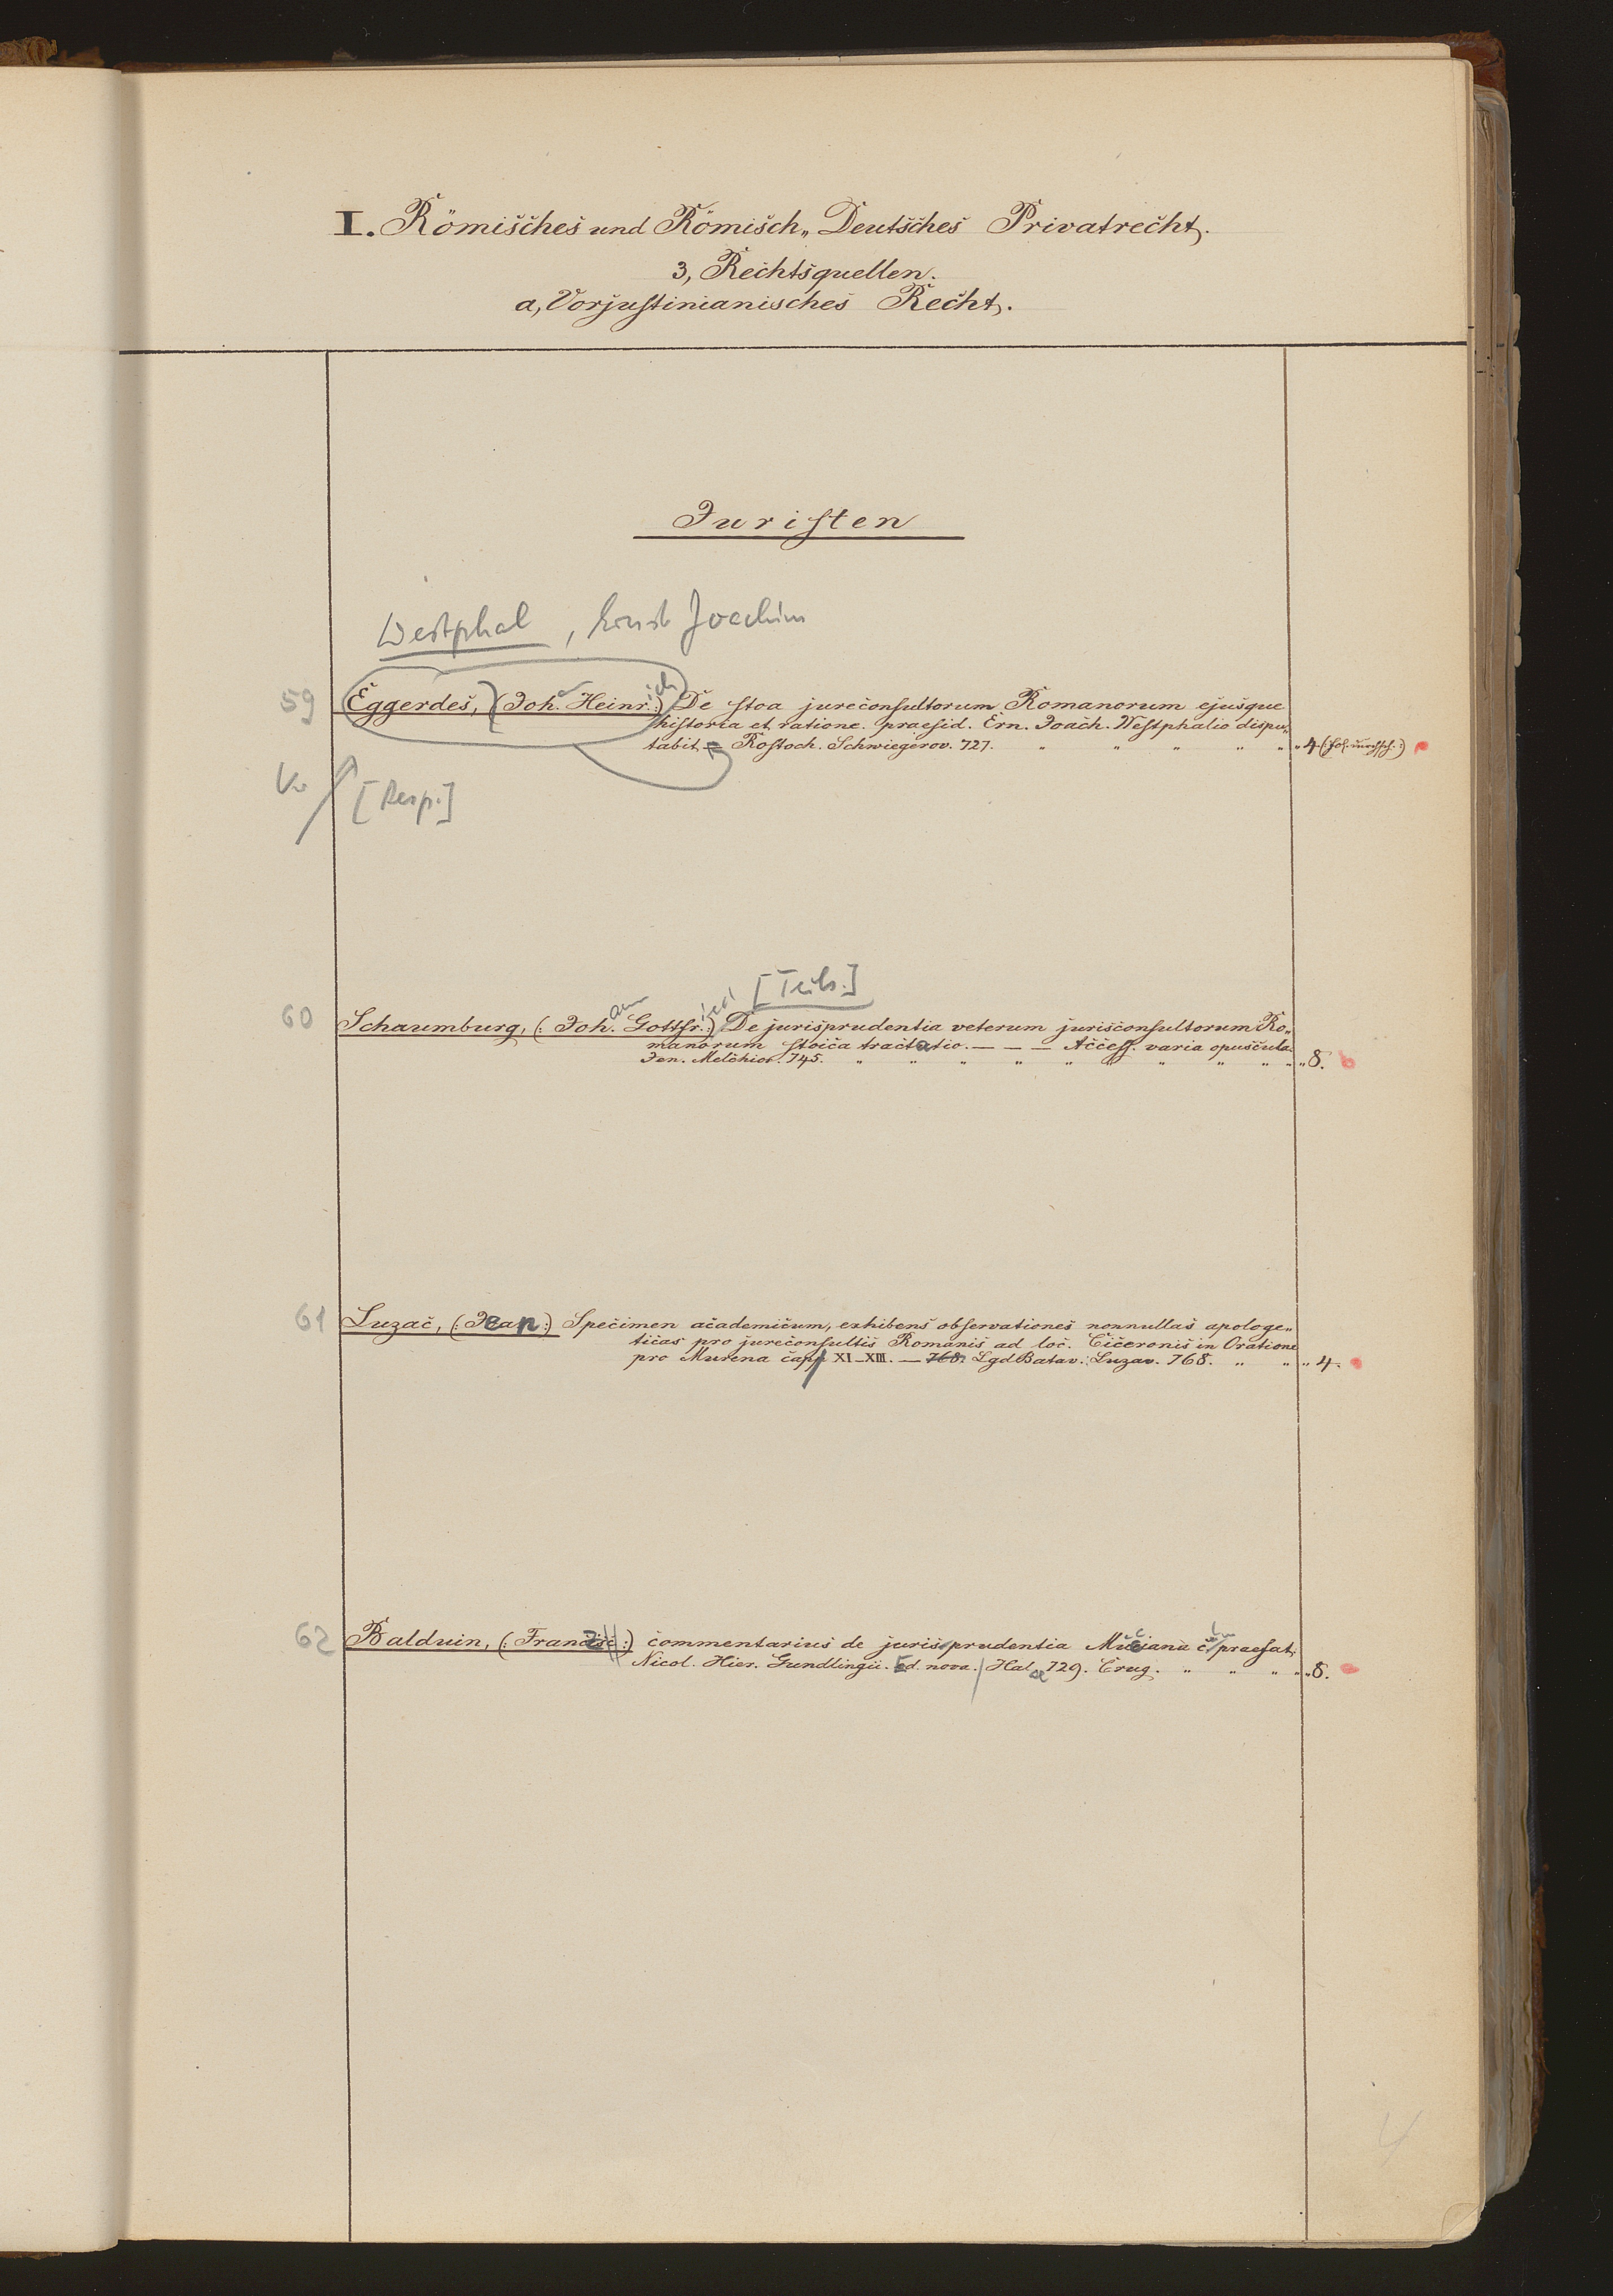 I. Römisches und Römisch„ Deutsches Privatrecht.
3, Rechtsquellen.
a, Vorjustinianisches Recht.
Juristen
Westphal, Ernst Joachim
59 Eggerdes, (Joh. Heinrich:) De stoa jureconsultorum Romanorum ejusque
historia et ratione. praesid. Ern. Joach. Westphalio dispu„
tabit – Rostoch. Schwiegerov. 727. „ „ „ „ „ „ 4.
[Resp.]
[Teils.]
60 Schaumburg, (: Johann Gottfried:) De jurisprudentia veterum jurisconsultorum Ro„
manorum stoica tractatio. — — — Access. varia opuscula.
Jen. Melchior. 745. „ „ „ „ „ „ „ „ „ „ „ 8.
61 Luzac, (: Jean:) Specimen academicum, exhibens observationes nonnullas apologe„
ticas pro jureconsultis Romanis ad loc. Ciceronis in Oratione
pro Murena capp XI–XIII. — 768. Lgd Batav. Luzav. 768. „ „ „ 4.
62 Balduin, (: Franc:) commentarius de jurisprudentia Muciana c. praefat.
Nicol. Hier. Gundlingii. Ed. nova. / Hal. 729. Crug. „ „ „ „ „ 8.